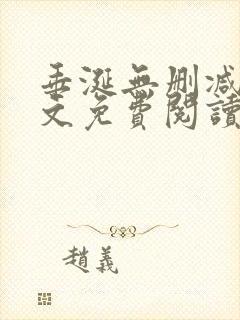 垂涎無刪減
文免費閱讀
趙義